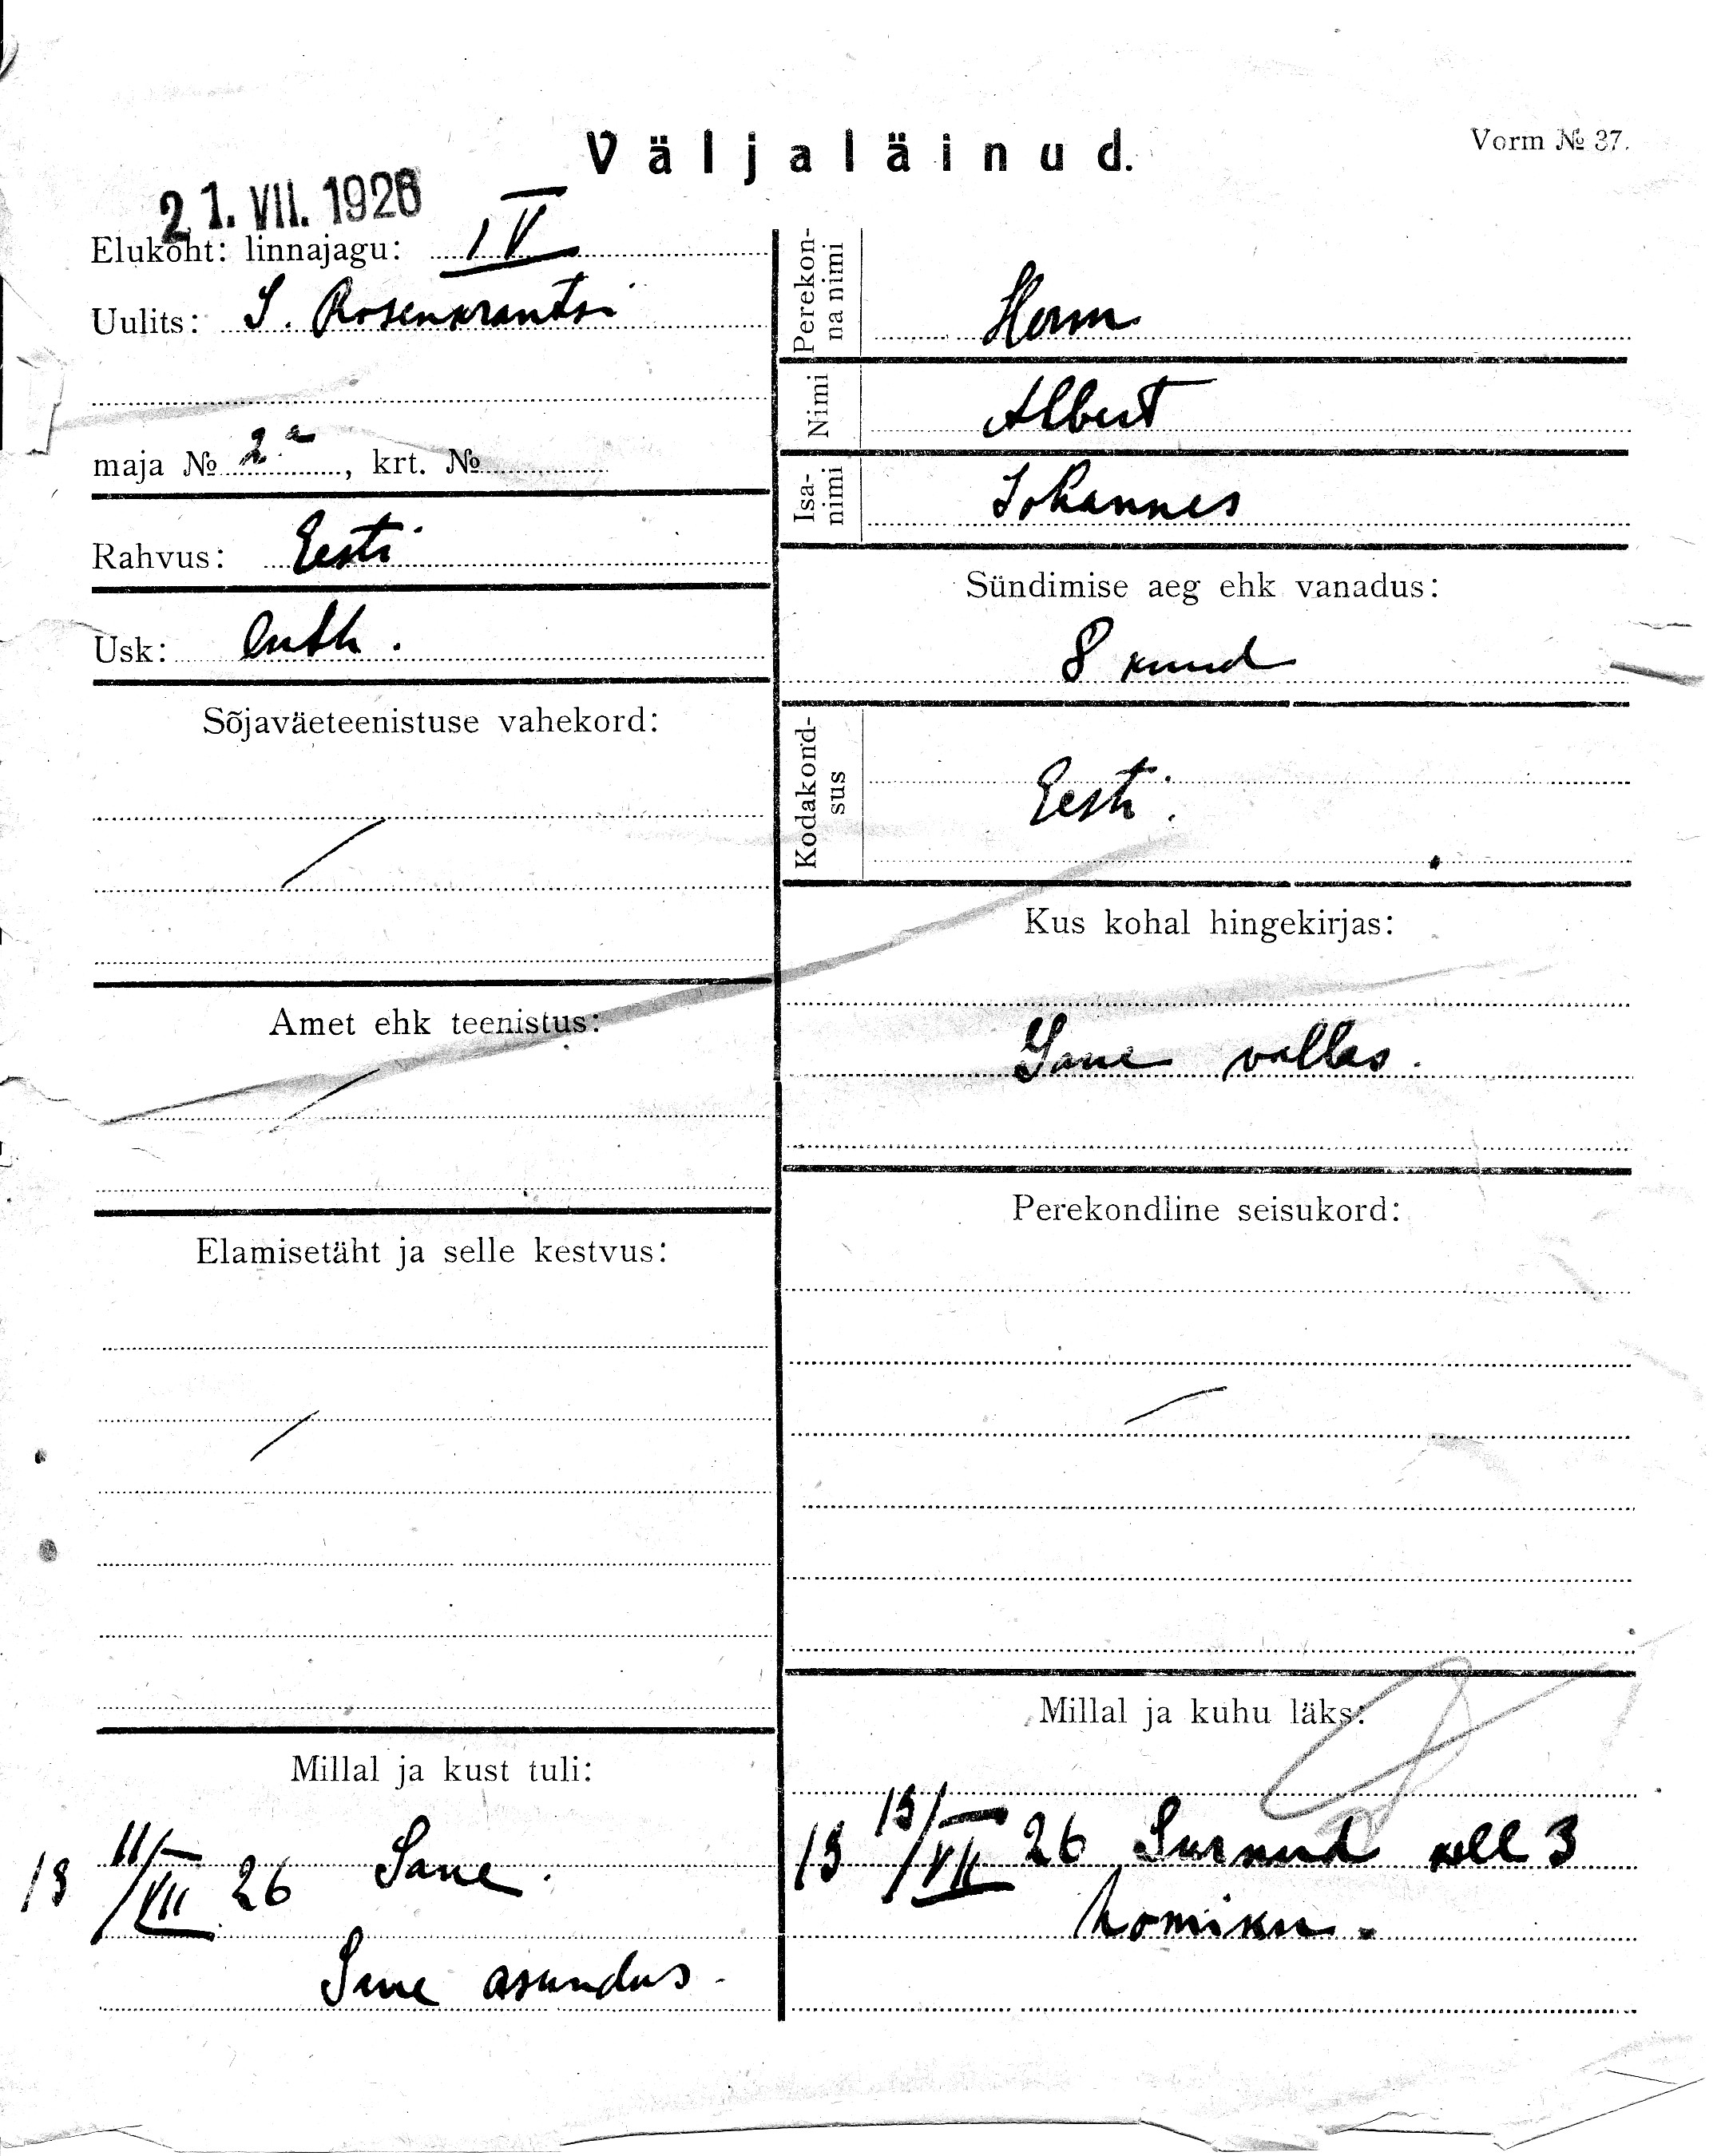 Väljaläinud.
Vorm № 37.
21. VII. 1926
Elukoht: linnajagu: IV
Uulits: S. Rosenkrantsi
maja № 2a, krt. №
Rahvus: Eesti
Usk: luth.
Sõjaväeteenistuse vahekord:
/
Amet ehk teenistus:
/
Elamisetäht ja selle kestvus:
/
Millal ja kust tuli:
19 11/VII 26 Sane.
Sane asundus.
Perekonna nimi
Herm
Nimi Albert
Isanimi Johannes
Sündimise aeg ehk vanadus:
8 kuud
Kodakondsus
Eesti.
Kus kohal hingekirjas:
vallas.
Perekondline seisukord:
/
Millal ja kuhu läks:
19 13/VII 26 Surnud kell 3
homiku.